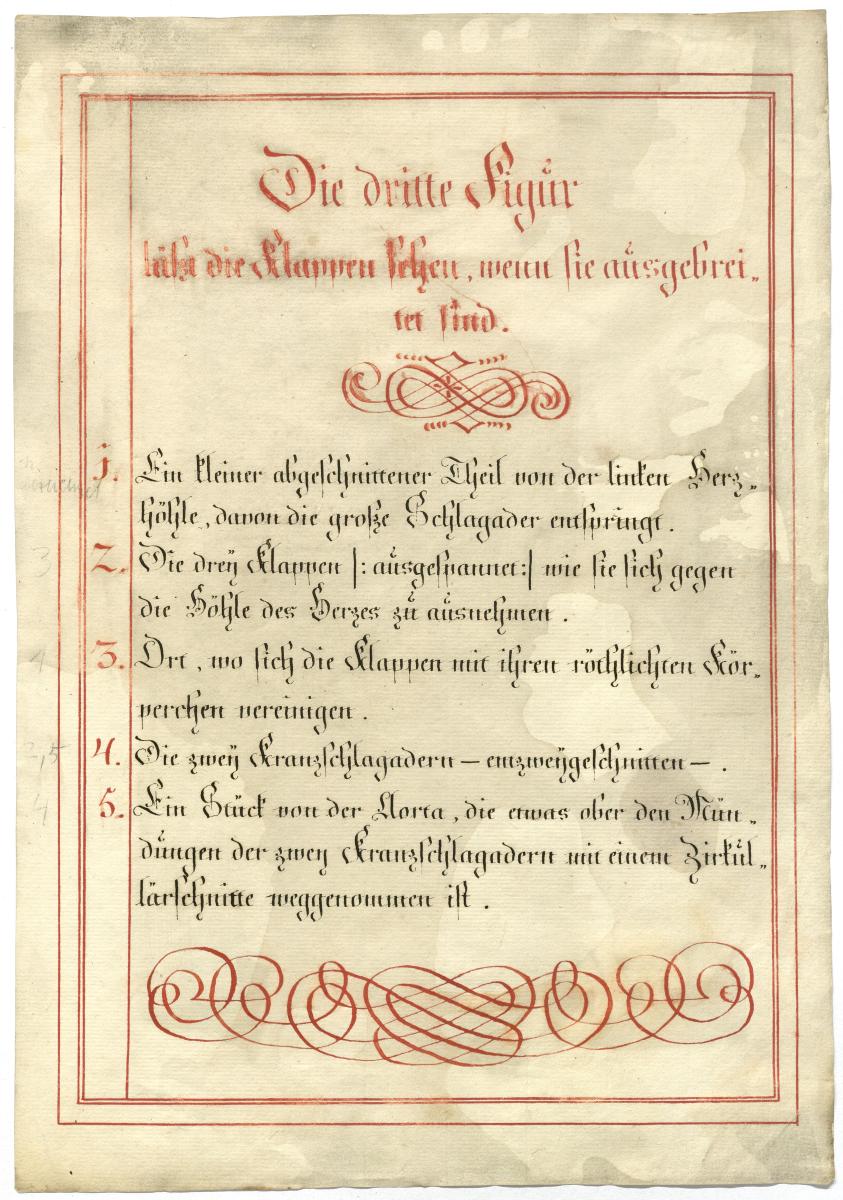 Die dritte Figur
läßt die Klappen sehen, wenn sie ausgebrei„
tet sind.
1. Ein kleiner abgeschnittener Theil von der linken Herz„
höhle, davon die große Schlagader entspringt.
2. Die dreÿ Klappen |: ausgespannet :| wie sie sich gegen
die Höhle des Herzes zu ausnehmen.
3. Ort, wo sich die Klappen mit ihren röthlichten Kör„
perchen vereinigen.
4. Die zweÿ Kranzschlagadern — entzweÿgeschnitten —.
5. Ein Stück von der Aorta, die etwas ober den Mün„
dungen der zweÿ Kranzschlagadern mit einem Zirkul„
lärschnitte weggenommen ist.